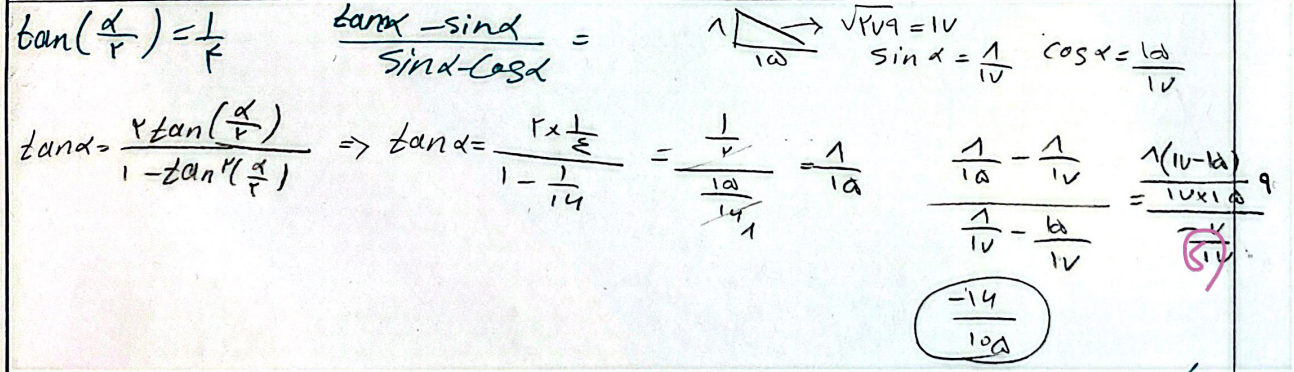 tan(α/۲) = ۱/۴    (tanα - sinα)/(sinα - cosα) =    ۸ ۱۵ → √۲۷۹ = ۱۷
sin α = ۸/۱۷   cos α = ۱۵/۱۷
tanα = ۲tan(α/۲)/(۱ - tan²(α/۲)) ⇒ tan α = (۲×۱/۴)/(۱ - ۱/۱۶) = (۱/۲)/(۱۵/۱۶) ۸ = ۸/۱۵    (۸/۱۵ - ۸/۱۷)/(۸/۱۷ - ۱۵/۱۷) = (۸(۱۷-۱۵)/(۱۷×۱۵))/(-۷/۱۷)
-۱۶/۱۰۵